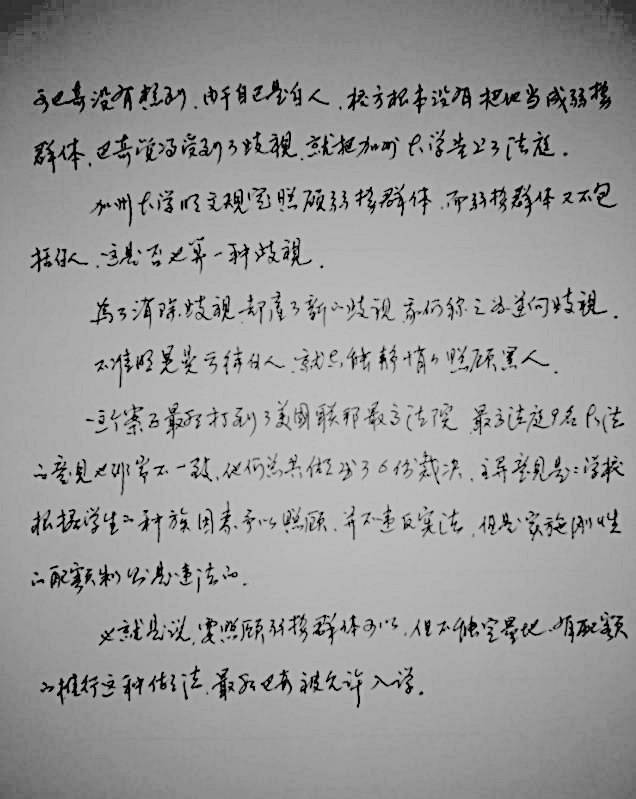 可巴奇没有想到，由于自己是白人，校方根本没有把他当成弱势
群体，巴奇觉得受到了歧视，就把加州大学告上了法庭。
加州大学明文规定照顾弱势群体，而弱势群体又不包
括白人，这是否也算一种歧视。
為了消除歧视，却产了新的歧视，我们称之为逆向歧视。
不准明晃晃亏待白人，就只能静悄的照顾黑人。
这个案子最后打到了美國联邦最高法院，最高法庭9名大法
的意见也非常不一致，他们总共做出了6份裁决，主异意见是：学校
根据学生的种族因素予以照顾，并不违反宪法，但是实施刚性
的配额制则是违法的。
也就是说，要照顾弱势群体可以，但不能定量地、有配额
的推行这种做法，最后巴奇被允许入学。